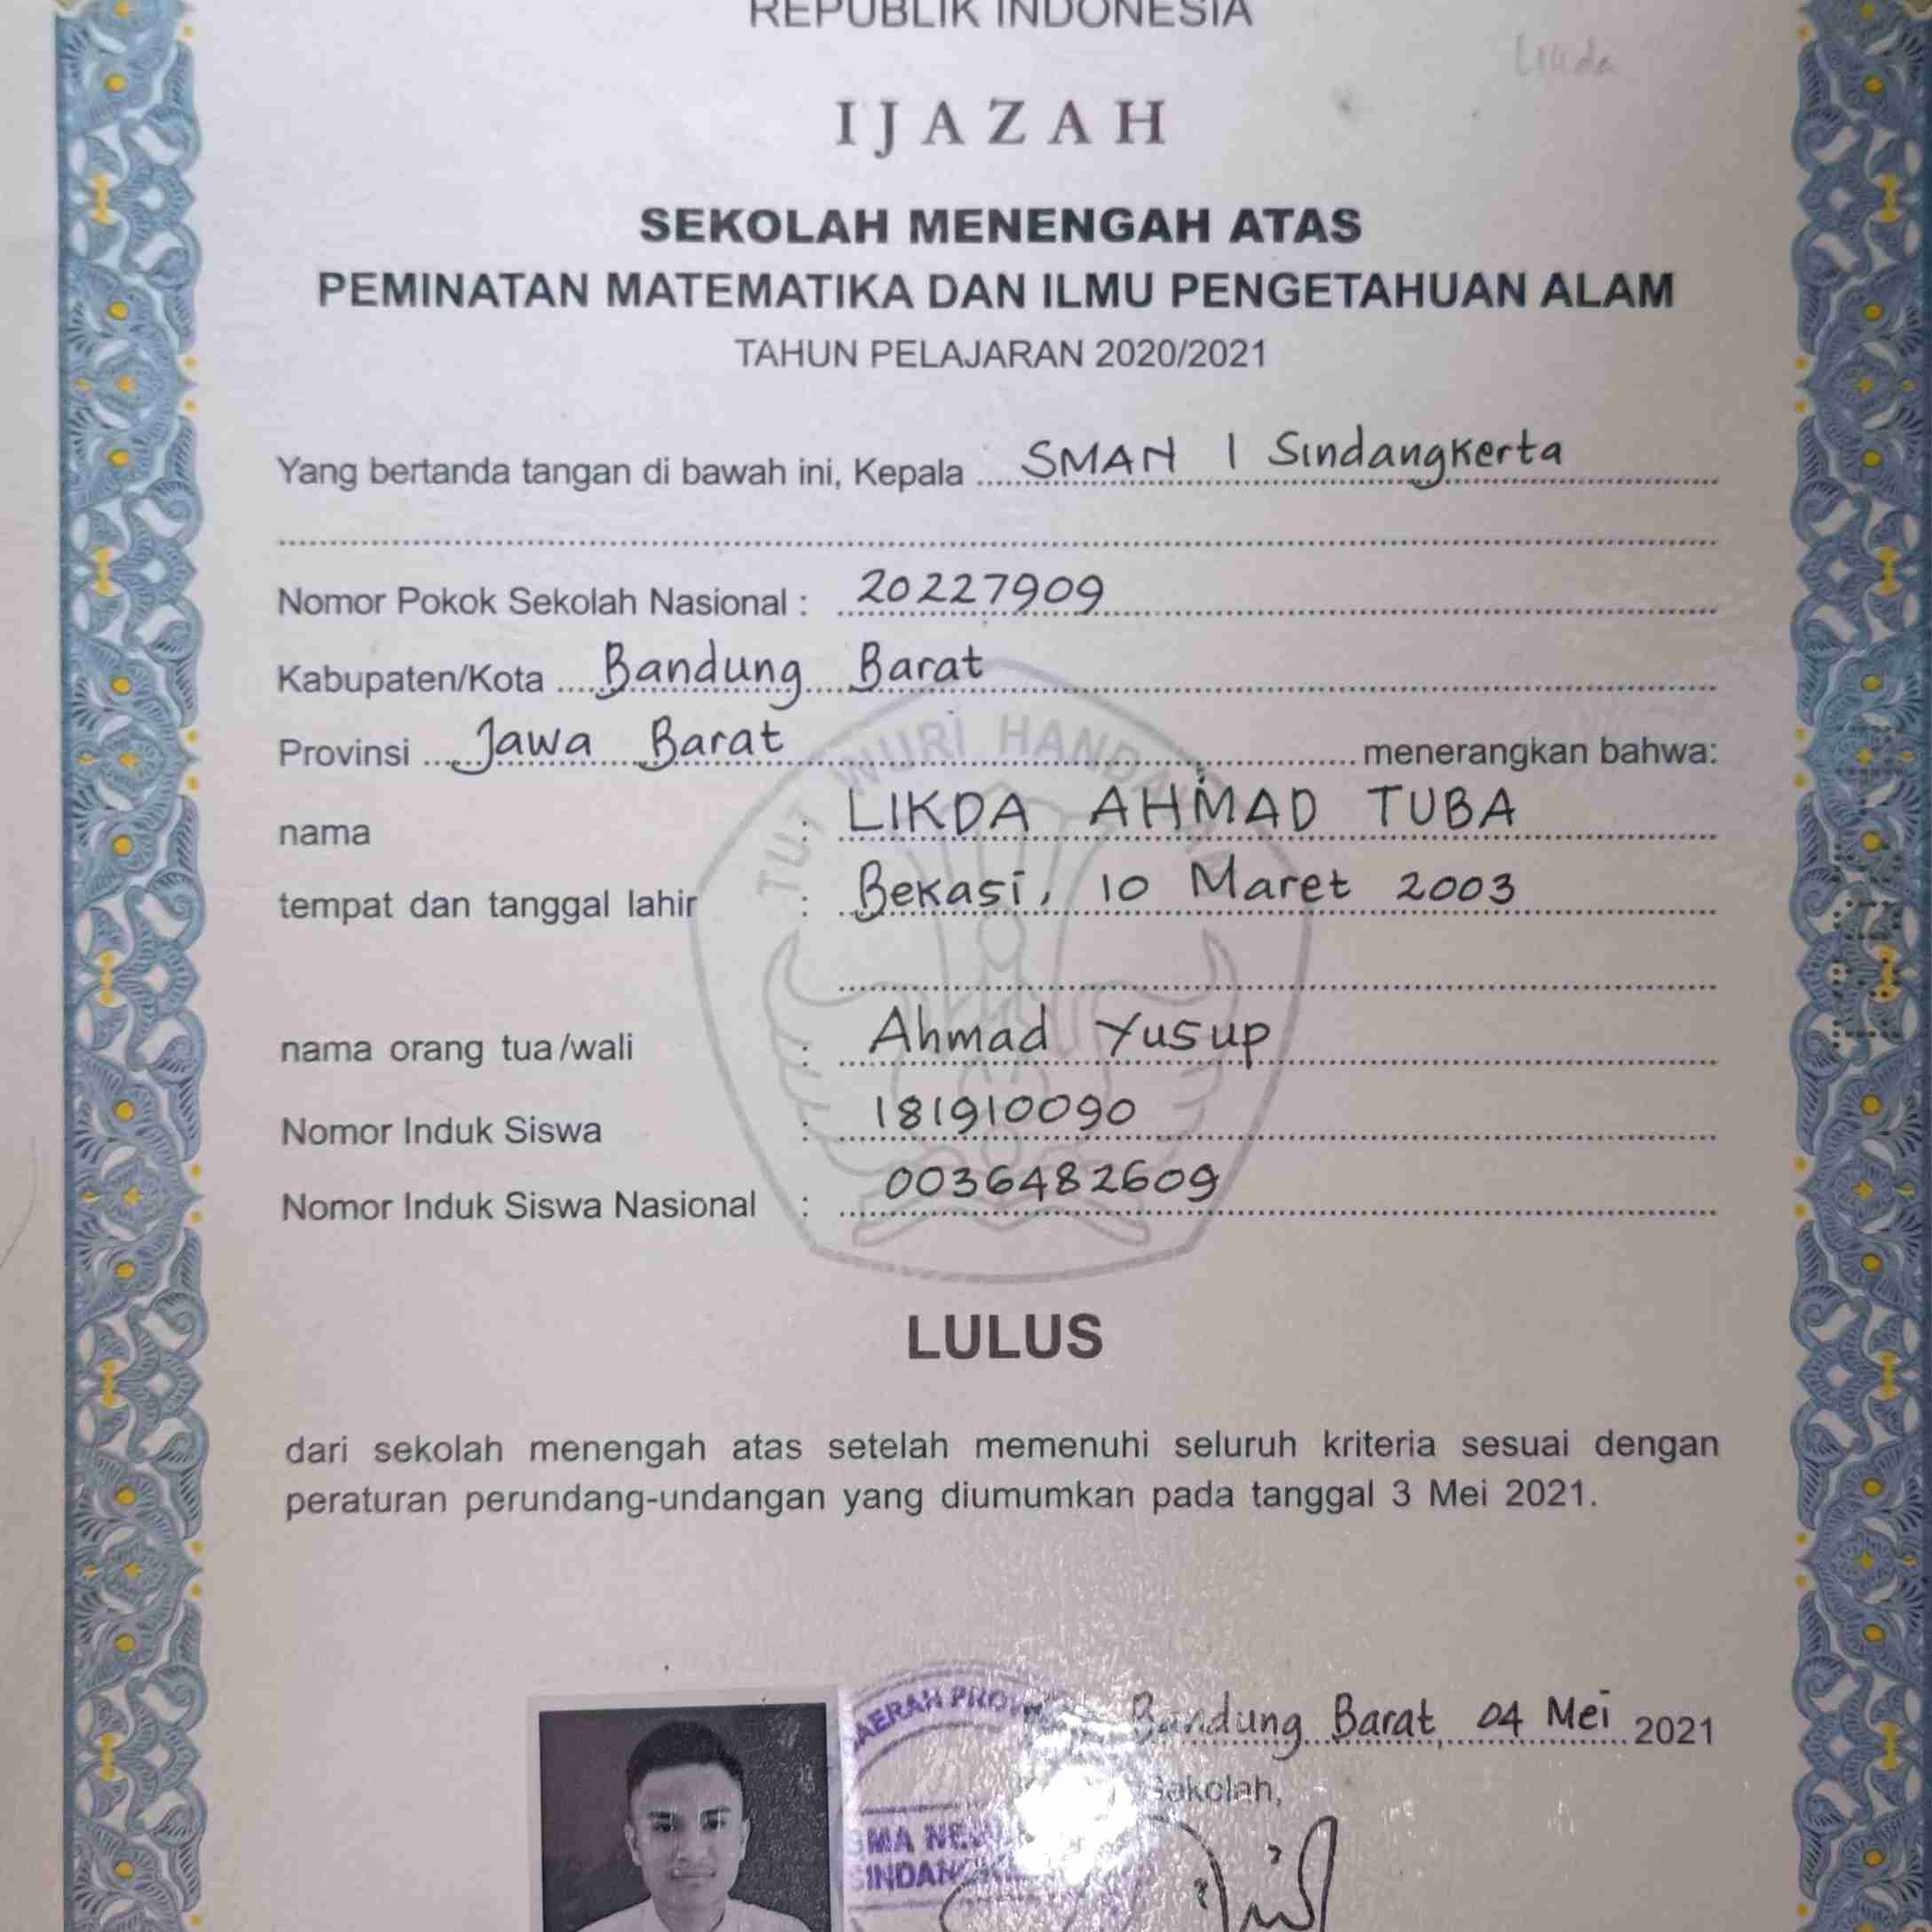 REPUBLIK INDONESIA
Likda
IJAZAH
SEKOLAH MENENGAH ATAS
PEMINATAN MATEMATIKA DAN ILMU PENGETAHUAN ALAM
TAHUN PELAJARAN 2020/2021
Yang bertanda tangan di bawah ini, Kepala SMAN 1 Sindangkerta
Nomor Pokok Sekolah Nasional : 20227909
Kabupaten/Kota Bandung Barat
Provinsi Jawa Barat menerangkan bahwa:
TUT WURI HANDA
nama : LIKDA AHMAD TUBA
tempat dan tanggal lahir : Bekasi, 10 Maret 2003
nama orang tua/wali : Ahmad Yusup
Nomor Induk Siswa : 181910090
Nomor Induk Siswa Nasional : 0036482609
LULUS
dari sekolah menengah atas setelah memenuhi seluruh kriteria sesuai dengan
peraturan perundang-undangan yang diumumkan pada tanggal 3 Mei 2021.
AERAH PRO
Bandung Barat, 04 Mei 2021
Sekolah,
SMA NE
SINDANG